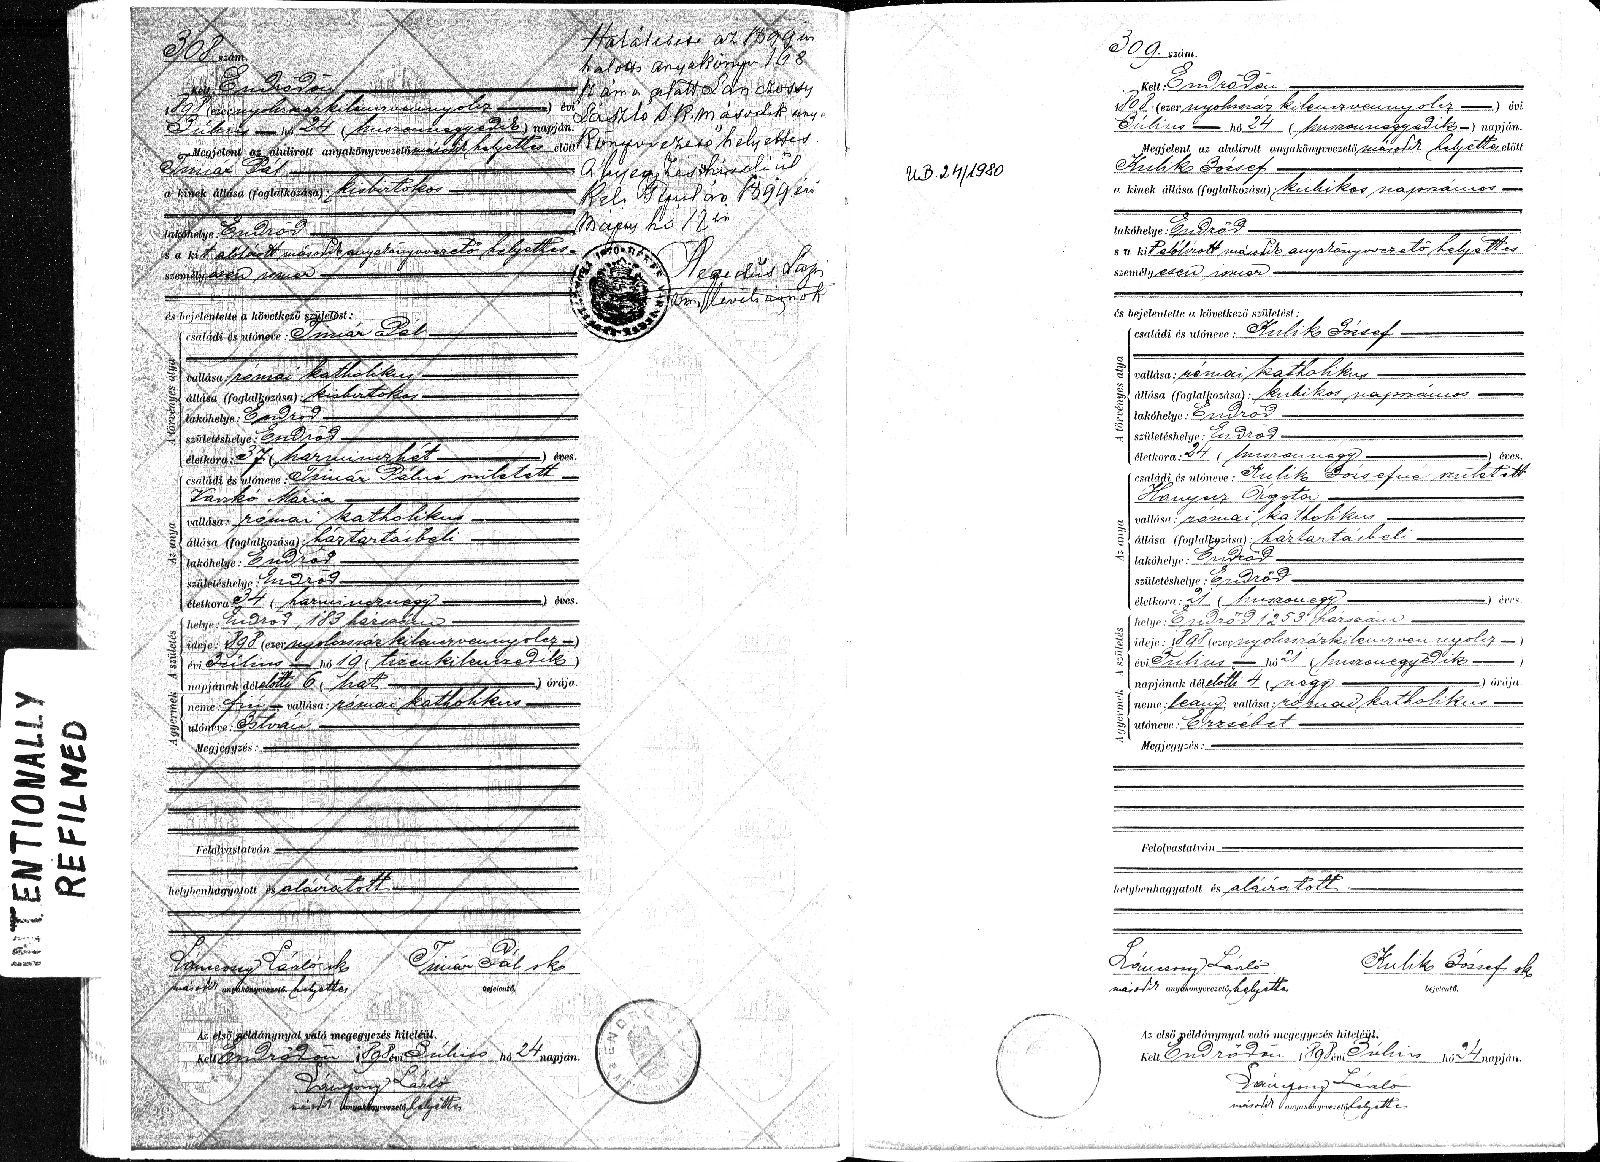 308 szám.
Kelt Endrődön
1898 (ezernyolcszázkilenczvennyolcz) évi
Július hó 24 (huszonnegyedik) napján.
Megjelent az alulirott anyakönyvvezető második helyettes előtt
Timár Pál
a kinek állása (foglalkozása): kisbirtokos
lakóhelye: Endrőd
s a kit alólirott második anyakönyvvezető helyettes
személyesen ismer
és bejelentette a következő születést:
A törvényes atya
családi és utóneve: Timár Pál
vallása: római katholikus
állása (foglalkozása): kisbirtokos
lakóhelye: Endrőd
születéshelye: Endrőd
életkora: 37 (harminczhét) éves.
Az anya
családi és utóneve: Timár Pálné született
Vaskó Mária
vallása: római katholikus
állása (foglalkozása): háztartásbeli
lakóhelye: Endrőd
születéshelye: Endrőd
életkora: 34 (harmincznégy) éves.
A születés
helye: Endrőd, 183 házszám
ideje: 1898 (ezernyolcszázkilenczvennyolcz)
évi Július hó 19 (tizenkilenczedik)
napjának délelőtti 6 (hat) órája.
A gyermek
neme: fiu vallása: római katholikus
utóneve: István
Megjegyzés:
Felolvastatván
helybenhagyatott és aláiratott
Lánczony László sk
Timár Pál sk
második anyakönyvvezető helyettes
bejelentő.
Az első példánynyal való megegyezés hiteléül.
Kelt Endrődön 1898 évi Július hó 24 napján.
Lánczony László
második anyakönyvvezető helyettes
Halálesete az 1899 évi
halotti anyakönyv 168
száma alatt Lánczossy
László s.k. második any.
könyvvezető helyettes.
A bejegyzés hiteléül
Kelt Gyulán, 1899 évi
május hó 12 én
Hegedüs
levéltárnok
INTENTIONALLY
REFILMED
U.B. 24/1980
309. szám.
Kelt: Endrődön
1898. (ezernyolcszázkilenczvennyolcz) évi
Július hó 24 (huszonnegyedik) napján.
Megjelent az alulirott anyakönyvvezető második helyettes előtt
Kulik József
a kinek állása (foglalkozása): kubikos napszámos
lakóhelye: Endrőd
s a kit alólirott második anyakönyvvezető helyettes
személyesen ismer
és bejelentette a következő születést:
A törvényes atya
családi és utóneve: Kulik József
vallása: római katholikus
állása (foglalkozása): kubikos napszámos
lakóhelye: Endrőd
születéshelye: Endrőd
életkora: 24 (huszonnégy) éves.
Az anya
családi és utóneve: Kulik Józsefné született
Hanyecz Ágota
vallása: római katholikus
állása (foglalkozása): háztartásbeli
lakóhelye: Endrőd
születéshelye: Endrőd
életkora: 21 (huszonegy) éves.
A születés
helye: Endrőd 1253 házszám
ideje: 1898 (ezernyolcszázkilenczvennyolcz)
évi Július hó 21 (huszonegyedik)
napjának délelőtti 4 (négy) órája
A gyermek
neme: leány vallása: római katholikus
utóneve: Erzsébet
Megjegyzés:
Felolvastatván
helybenhagyatott és aláiratott
Lánczony László
Kulik József sk
második anyakönyvvezető helyettes
bejelentő.
Az első példánynyal való megegyezés hiteléül.
Kelt Endrődön 1898 évi Július hó 24 napján.
Lánczony László
második anyakönyvvezető helyettes